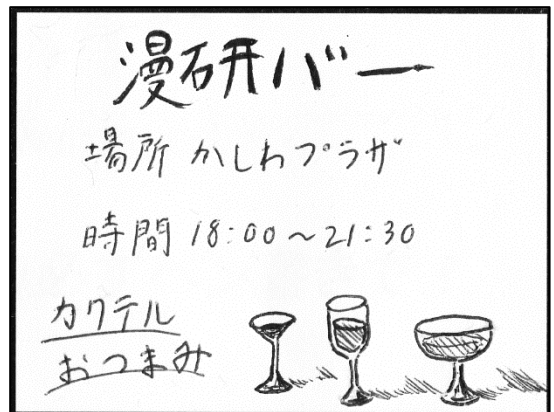 漫研バー
場所 かしわプラザ
時間 18:00～21:30
カクテル
おつまみ